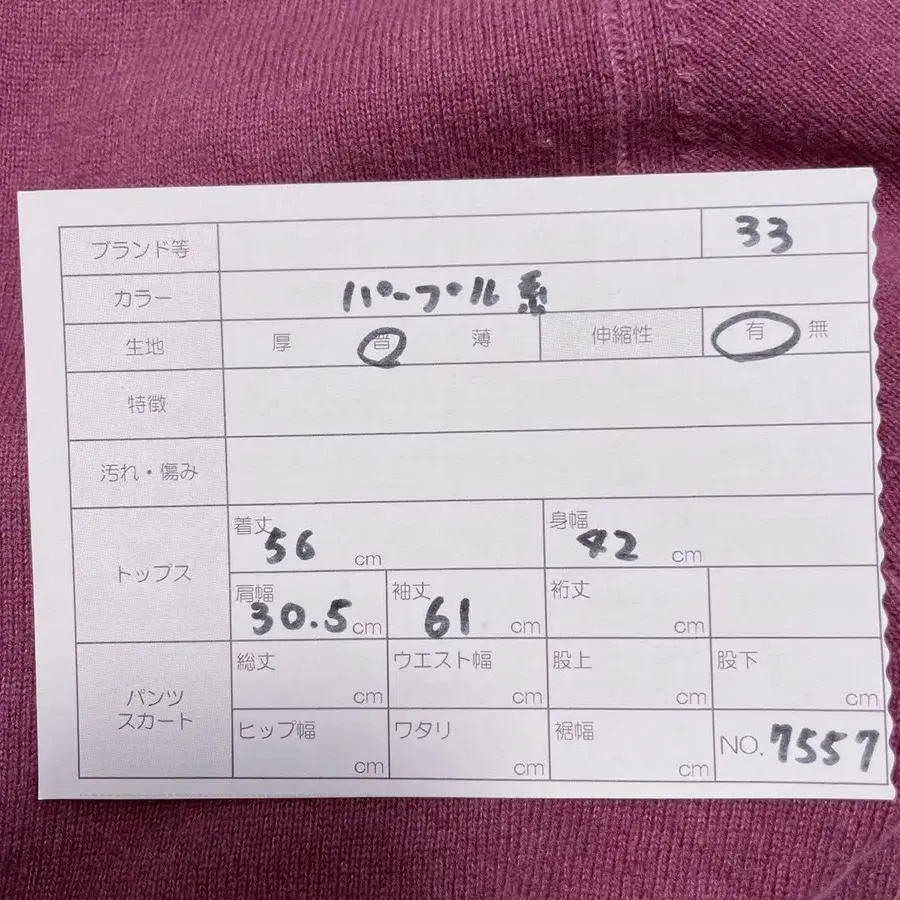 ブランド等 33
カラー パープル系
生地 厚 普 薄 伸縮性 有 無
特徴
汚れ・傷み
トップス 着丈 56 cm 身幅 42 cm
肩幅 30.5 cm 袖丈 61 cm 裄丈 cm
パンツ スカート 総丈 cm ウエスト幅 cm 股上 cm 股下 cm
ヒップ幅 cm ワタリ cm 裾幅 cm NO. 7557